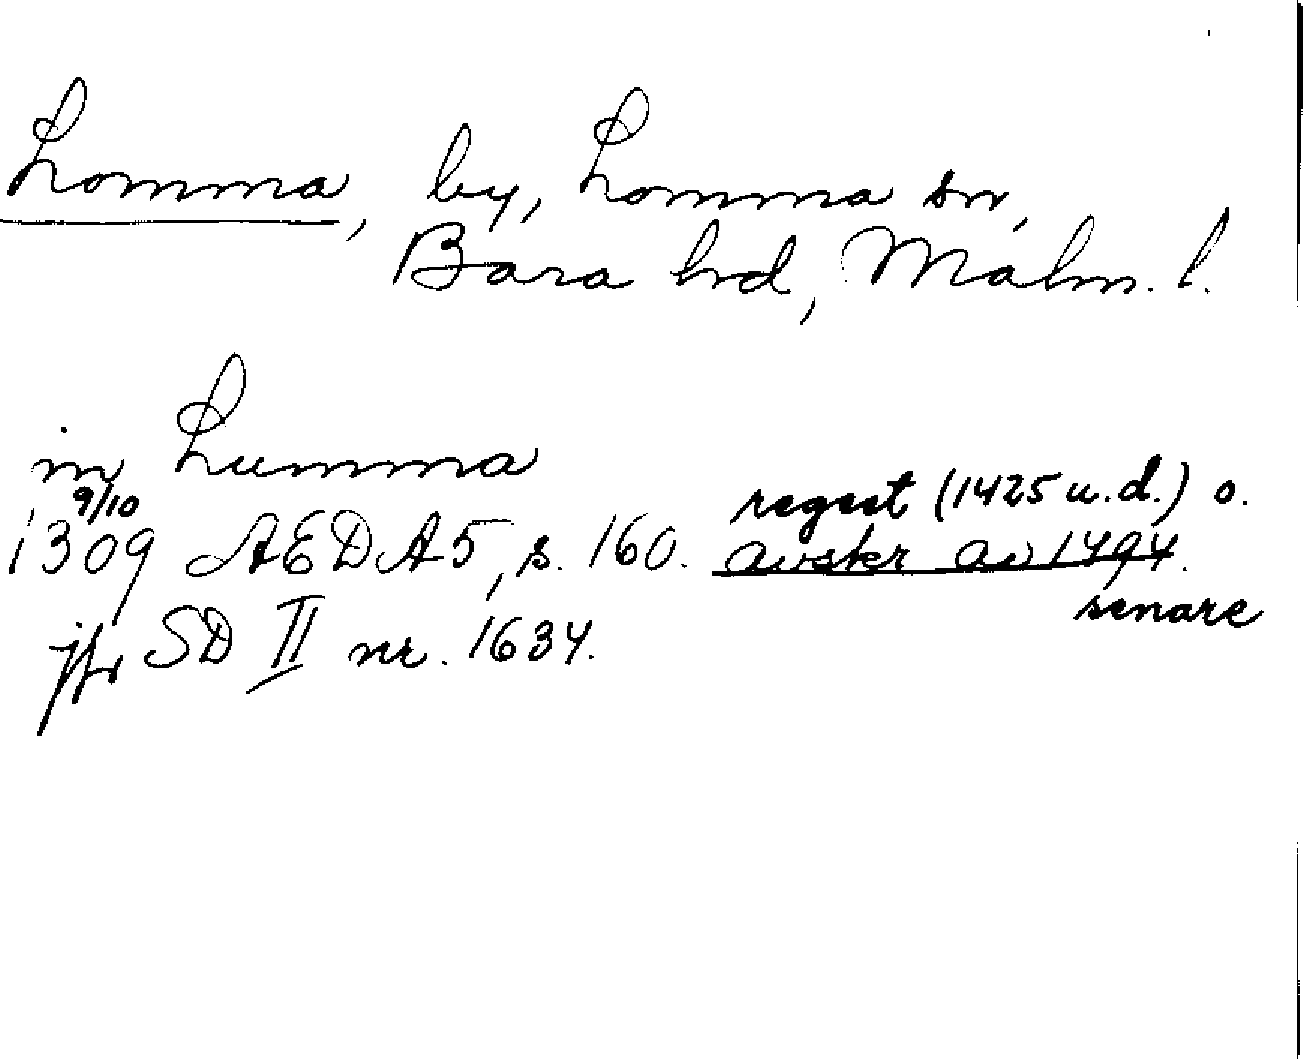 Lomma, by, Lomma sn,
Bara hrd, Malm. l.
in Lumma
9/10
1309 AEDA5, s. 160. regest (1425 u.d.) o.
avskr av 1494.
senare
jfr SD II nr. 1634.